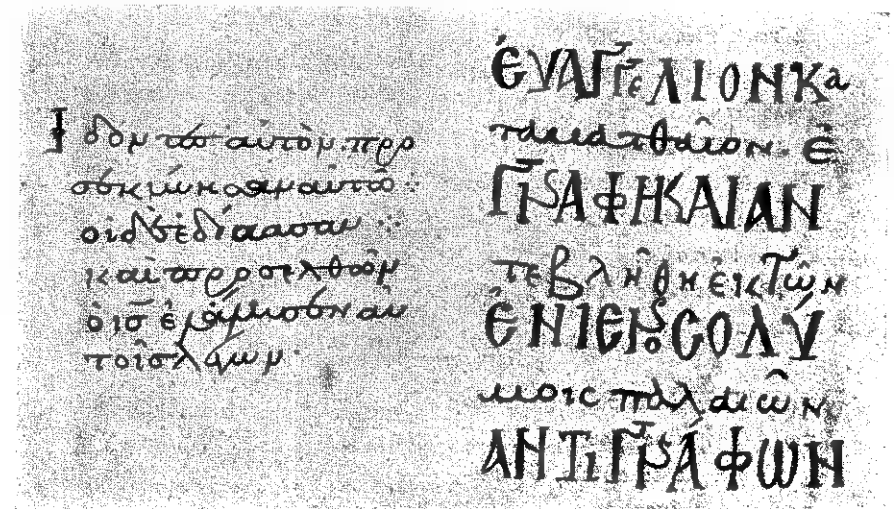 Ἰδόντες αὐτὸν προ
σεκύνησαν αὐτῶ:
οἱ δὲ ἐδίστασαν:
καὶ προσελθὼν
ὁ ις ἐλάλησεν αὐ
τοῖς λέγων·
ἘΥΑΓΓΕΛΙΟΝ Κα
τα ματθαῖον· Ἐ
ΓΡΑΦΗ ΚΑΙ ΑΝ
τεβλήθη ἐκ Τῶν
ἘΝ ΙΕΡΟΣΟΛΎ
μοις παλαιῶν
ΑΝΤΙΓΡΆΦΩΝ